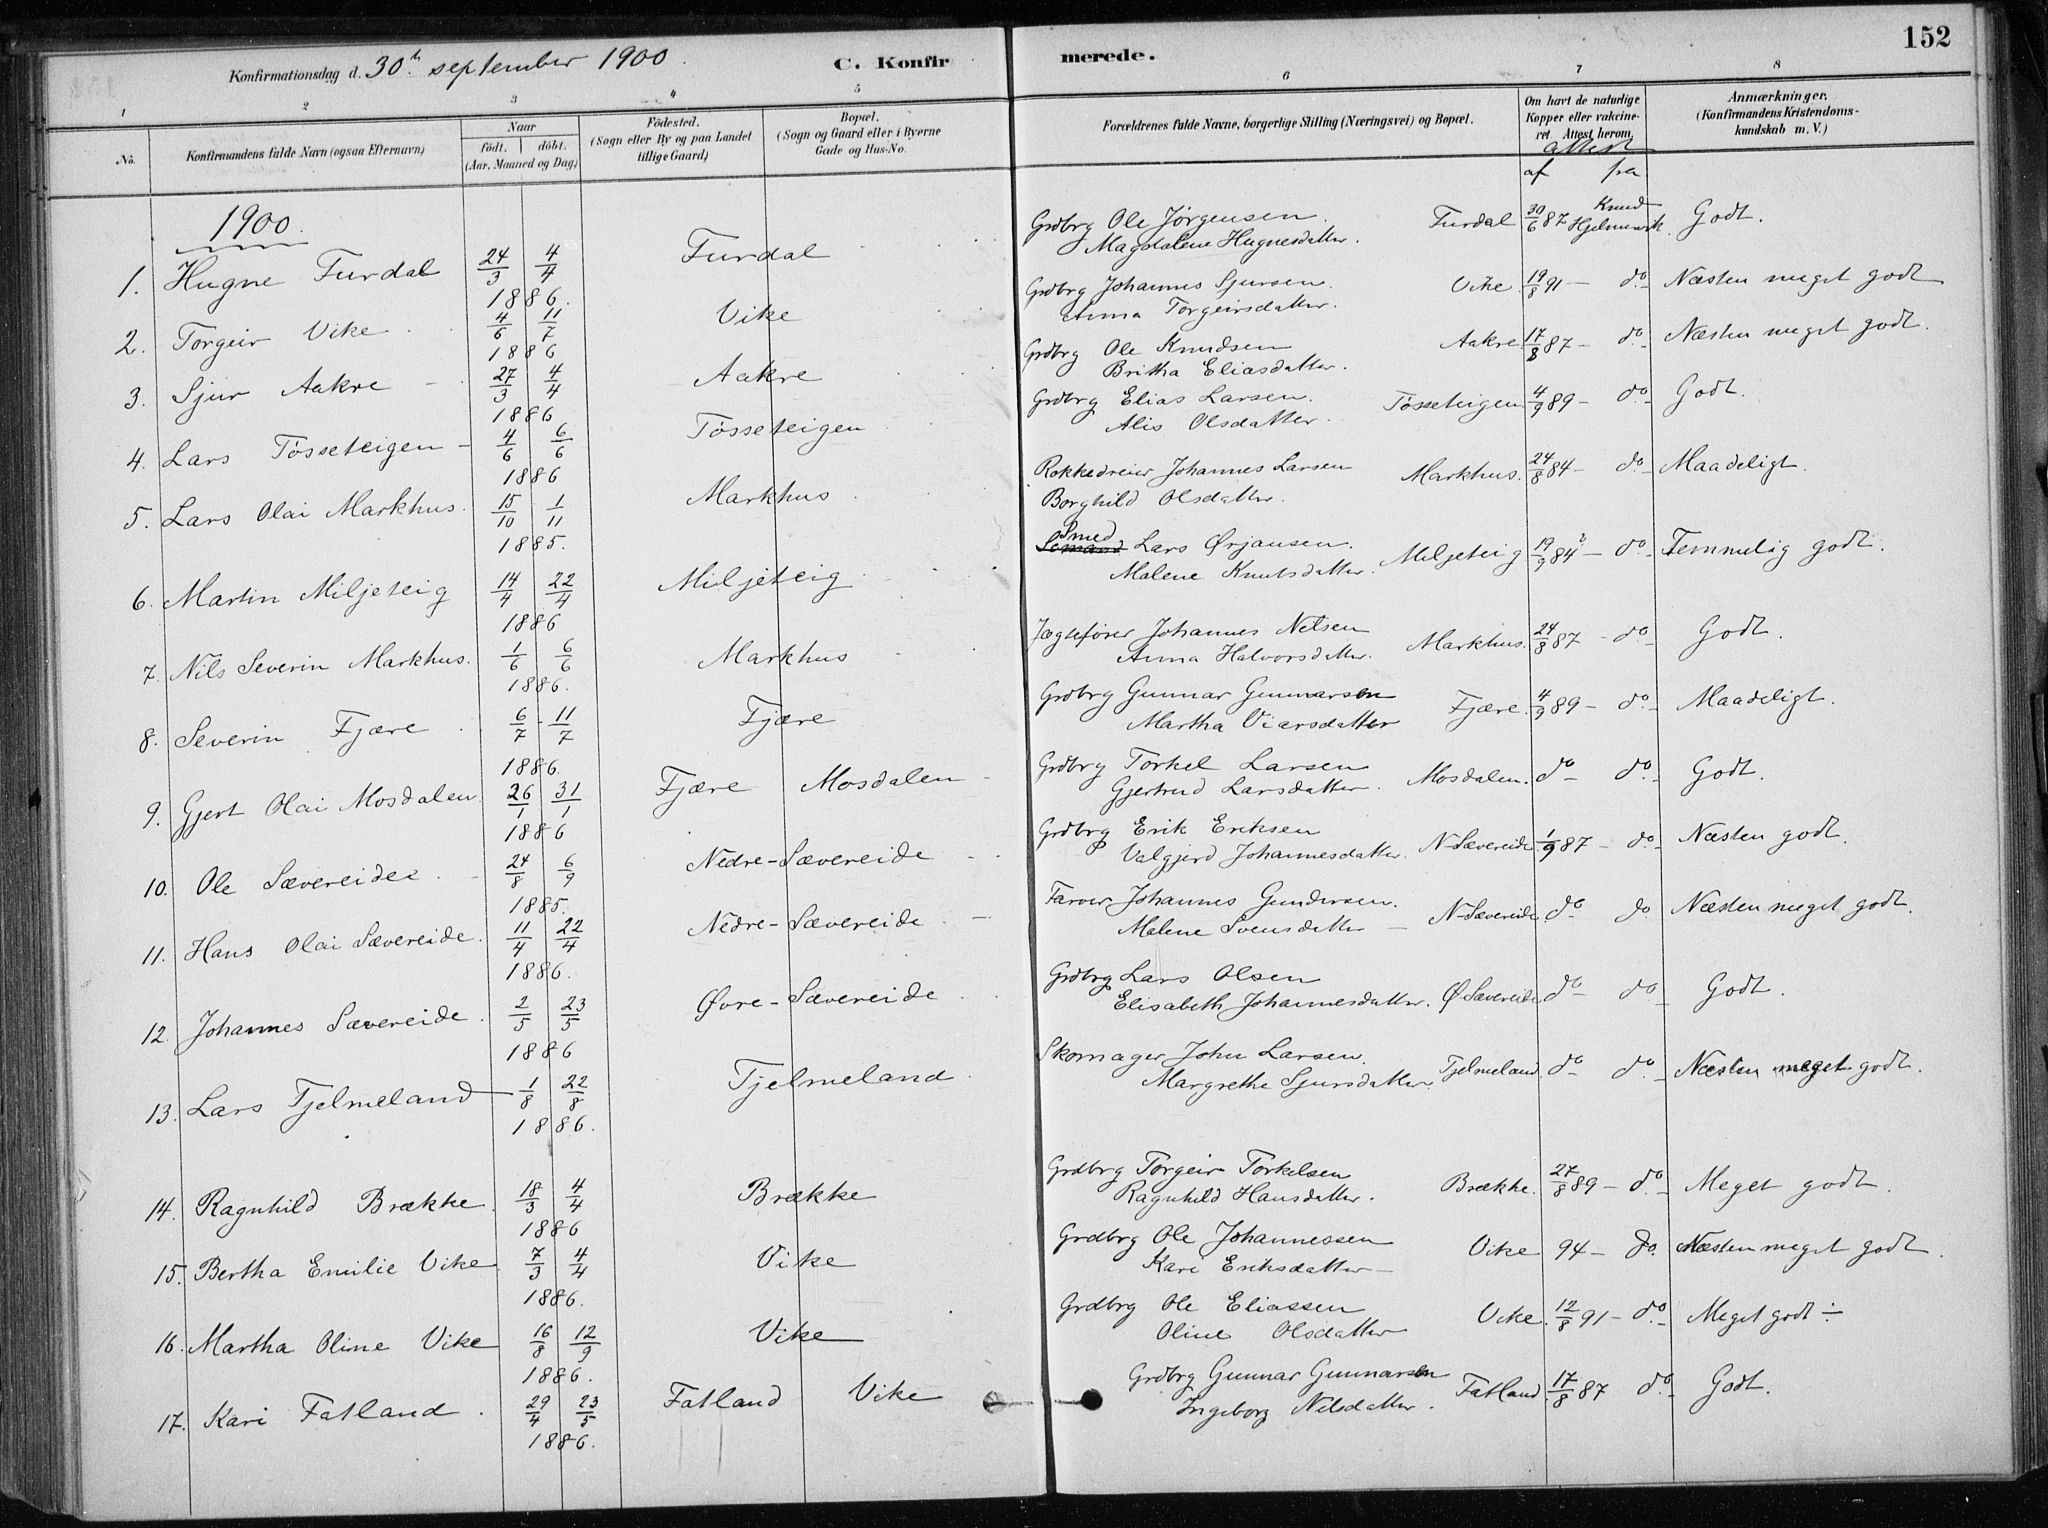 152
Konfirmationsdag d. 30th september 1900. C. Konfirmerede.
1 2 3 4 5 6 7 8
No. Konfirmandens fulde Navn (ogsaa Efternavn) Naar født. døbt. (Aar, Maaned og Dag) Fødested. (Sogn eller By og paa Landet tillige Gaard) Bopæl. (Sogn og Gaard eller i Byerne Gade og Hus-No. Forældrenes fulde Navne, borgerlige Stilling (Næringsvei) og Bopæl. Om havt de naturlige Kopper eller vakcineret. Attest herom. Anmærkninger. (Konfirmandens Kristendomskundskab m. V.)
attest
af fra
1900.
1. Hugne Furdal 24/3 4/4 1886. Furdal Grdbrg Ole Jørgensen. Magdalene Hugnesdatter. Furdal 30/6 87 Knud Hjelmervik. Godt.
2. Torgeir Vike 4/6 11/7 1886 Vike Grdbrg Johannes Sjursen. Anna Torgeirsdatter. Vike. 19/8 91 – do. Næsten meget godt
3. Sjur Aakre – 27/3 4/4 1886 Aakre Grdbrg Ole Knudsen Britha Eliasdatter. Aakre 17/8 87 – do. Næsten meget godt.
4. Lars Tösseteigen – 4/6 6/6 1886 Tösseteigen Grdbrg Elias Larsen. Alis Olsdatter. Tösseteigen 4/9 89 – do. Godt.
5. Lars Olai Markhus. 15/10 1/11 1885. Markhus Rokkedreier Johannes Larsen Borghild Olsdatter. Markhus. 24/8 84 – do. Maadeligt.
6. Martin Miljeteig 14/4 22/4 1886 Miljeteig Smed Lars Ørjansen. Malene Knutsdatter. Miljeteig 19/9 84 – do. Temmelig godt.
7. Nils Severin Markhus. 1/6 6/6 1886. Markhus Jægtefører Johannes Nelsen Anna Halvorsdatter. Markhus. 24/8 87 – do. Godt.
8. Severin Fjære 6/7 – 11/7 1886. Fjære Grdbrg Gunnar Gunnarsen Martha Viarsdatter Fjære. 4/9 89 – do. Maadeligt.
9. Gjert Olai Mosdalen. 26/1 31/1 1886 Fjære Mosdalen – Grdbrg Torkel Larsen Gjertrud Larsdatter. Mosdalen. do – do. Godt.
10. Ole Sævereide 24/8 6/9 1885. Nedre-Sævereide Grdbrg Erik Eriksen Valgjerd Johannesdatter. N-Sævereide 1/9 87 – do. Næsten godt.
11. Hans Olai Sævereide. 11/4 22/4 1886. Nedre-Sævereide – Farver Johannes Gundersen. Malene Svensdatter – N-Sævereide. do – do Næsten meget godt.
12. Johannes Sævereide. 2/5 23/5 1886 Øvre-Sævereide Grdbrg Lars Olsen Elisabeth Johannesdatter. Ø Sævereide do – do Godt.
13. Lars Tjelmeland 1/8 22/8 1886. Tjelmeland Skomager John Larsen. Margrethe Sjursdatter. Tjelmeland. do – do. Næsten meget godt.
14. Ragnhild Brække. 18/3 4/4 1886 Brække Grdbrg Torgeir Torkelsen Ragnhild Hansdatter. Brække. 27/8 89 – do. Meget godt.
15. Bertha Emilie Vike 7/3 4/4 1886. Vike Grdbrg Ole Johannessen Kari Eriksdatter – Vike 94 – do. Næsten meget godt.
16. Martha Oline Vike 16/8 12/9 1886. Vike Grdbrg Ole Eliassen Oline Olsdatter Vike. 12/8 91 – do. Meget godt ÷
17. Kari Fatland. 29/4 23/5 1886. Fatland Vike Grdbrg Gunnar Gunnarsen Ingeborg Nilsdatter. Fatland. 17/8 87 do. – Godt.